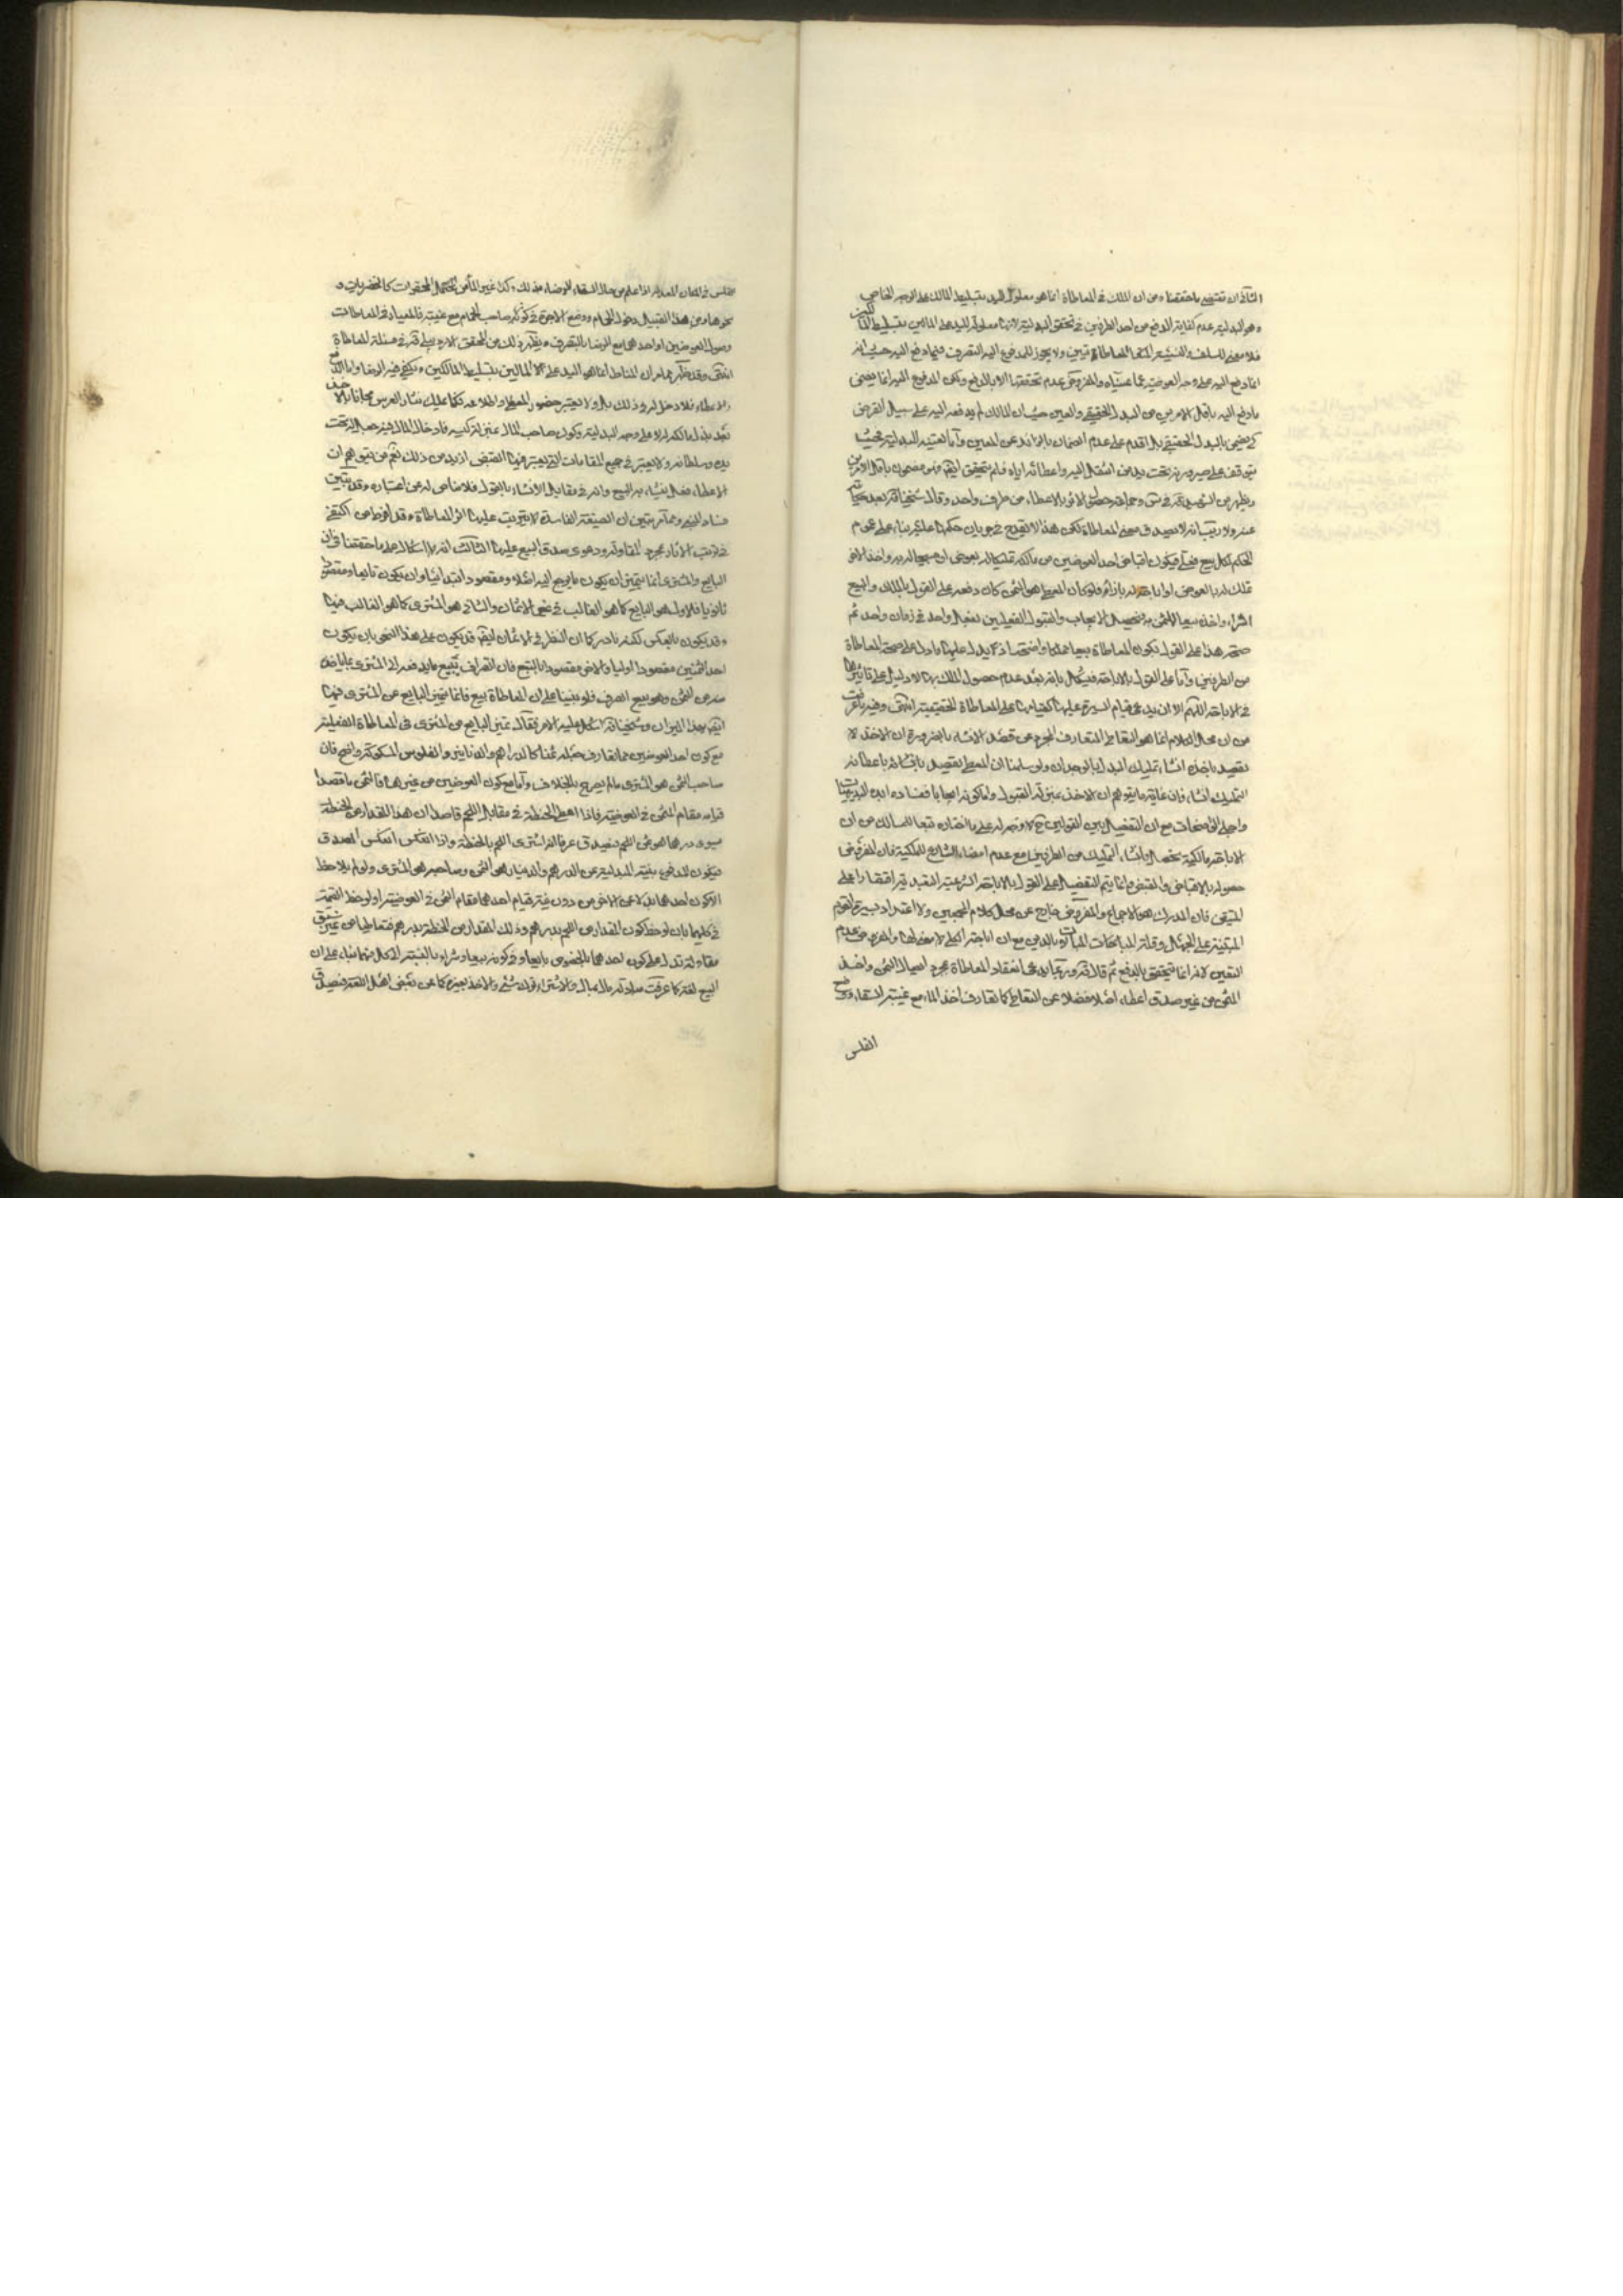 الثانی ان تقتضی ما حققناه من ان الملك فی المعاطاة انما هو معلول لليد بتسليط المالك على الوجه الخاص
وهو البدلية عدم كفاية الدفع من احد الطرفين فی تحقق البدلية لانها معلولة لليد على المالين بتسليط المالكين
فلا معنى للسلف والنسيئة فی المعاطاة ولا يجوز للمدفوع اليه التصرف فيما دفع اليه حيث انه
انما دفع اليه على وجه العوضية والمفروض عدم تحققها الا بالدفع ولكن المدفوع اليه انما يضمن
ما دفع اليه باقل الامرين من البدل الحقيقی والعين حيث ان المالك لم يدفعه اليه على سبيل القرض
كی يضمن بالبدل الحقيقی بل اقدم على عدم الضمان بالزائد عن المعين واما تعينه البدلية بحيث
يتوقف على صيرورته تحت يد من انتقل اليه واعطائه اياه فلم يتحقق ايضا فهو مضمون باقل الامرين
ويظهر من الشهيد فی وجماعة حصول الاثر بالاعطاء من طرف واحد وقال شيخنا بعد حكايته
عنه ولا ريب انه لا يصدق معنى المعاطاة لكن هذا لا يقدح فی جريان حكمها عليه بناء على عموم
الحكم لكل بيع فعلی فيكون اقباض احد العوضين من مالكه تمليكا له بعوض او مبيحا له به واخذ الاخر
تملك له بالعوض او اباحة له بازائه فلو كان المعطى هو الثمن كان دفعه على القول بالملك والبيع
اشتراء واخذه بيعا للمثمن به فيحصل الايجاب والقبول الفعليين بفعل واحد فی زمان واحد ثم
صحة هذا على القول بكون المعاطاة بيعا مملكا واضحة اذ يدل عليها ما دل على صحة المعاطاة
من الطرفين واما على القول بالاباحة فيشكل بانه بعد عدم حصول الملك بها لا دليل على تاثيرها
فی الاباحة اللهم الا ان يدعى قيام السيرة عليها كقيامها على المعاطاة الحقيقية انتهى وفيه ما عرفت
من ان محل الكلام انما هو التعاطی المتعارف المجرد عن قصد الانشاء بالضرورة ان الاخذ لا
يقصد باخذه انشاء تمليك البدل بالوجدان ولو سلمنا ان المعطى يقصد باعطائه
التمليك انشاء فان غاية ما يتوهم ان الاخذ بمنزلة القبول واما كونه ايجابا ففساده من البديهيات
واجلى الواضحات مع ان التفصيل بين القولين لا وجه له على ما اختاره تبعا للمسالك من ان
الاباحة مالكية تحصل وانشاء التمليك من الطرفين مع عدم امضاء الشارع للملكية فان المفروض
حصوله بالاقباض والقبض وانما يتم التفصيل على القول بالاباحة الشرعية التعبدية اقتصارا على
المتيقن فان المدرك هو الاجماع والمفروض خارج عن محل كلام المجمعين ولا اعتداد بسيرة العوام
المبتنية على الجهل وقلة المبالات بالدين مع ان اباحة الكلی لا معنى لها والمفروض عدم
التعين لانه انما يتحقق بالدفع ثم قال وربما يدعى انعقاد المعاطاة بمجرد ايصال الثمن واخذ
المثمن من غير صدق اعطاء اصلا فضلا عن التعاطی كما تعارف اخذ الماء مع غيبة السقاء ووضع
الفلس
الفلس فی المكان المعد له اذا علم من حال السقاء الرضا بذلك وكذا غير الماء من المحقرات كالخضريات و
نحوها ومن هذا القبيل دخول الحمام ووضع الاجرة فی كوز صاحب الحمام مع غيبته فالمعيار فی المعاطات
وصول العوضين او احدهما مع الرضا بالتصرف ويظهر ذلك من المحقق الاردبيلی فی مسئلة المعاطاة
انتهى وقد ظهر مما مر ان المناط انما هو اليد على المالين بتسليط المالكين ويكفی فيه الرضا واما الدفع
والاعطاء فلا دخل له فی ذلك بل ولا يعتبر حضور المعطى واطلاعه فكما تمليك نثار العرس مجانا بالاخذ
بعد بذل مالكه له لا على وجه البدلية وكون صاحب المال بمنزلة كيسه فادخال المال فيه جعل له تحت
يده وسلطانه ولا يعتبر فی جميع المقامات التی يعتبر فيها القبض ازيد من ذلك نعم من يتوهم ان
الاعطاء فعل ينشاء به البيع وانه فی مقابل الانشاء بالقول فلا مناص له عن اعتباره وقد تبين
فساد المبنى ومما مر يتبين ان الصيغة الفاسدة لا يترتب عليها اثر المعاطاة وقد افرط من اكتفى
فی ترتب الاثار بمجرد المقاولة ودعوى صدق البيع عليها الثالث انه لا اشكال على ما حققناه فی ان
البايع والمشتری انما يتميزان بكون ما يرجع اليه اصلا ومقصودا ابتدائيا وان يكون تابعا ومقصودا
ثانويا فالاول هو البايع كما هو الغالب فی غير الاثمان والثانی هو المشتری كما هو الغالب فيها
وقد يكون بالعكس لكنه نادر كما ان النظر فی الاثمان ايضا قد يكون على هذا النحو بان يكون
احد الثمنين مقصودا اوليا والاخر مقصودا بالتبع فان الصراف يبيع ما يدفعه الى المشتری بما ياخذه
منه من الثمن وهو بيع الصرف فلو بنينا على ان المعاطاة بيع فانما يتميز البايع عن المشتری فيها
ايضا بهذا الميزان وشيخنا اشكل عليه الامر فقال تميز البايع من المشتری فی المعاطاة الفعلية
مع كون احد العوضين مما تعارف جعله ثمنا كالدراهم والدنانير والفلوس المسكوكة واضح فان
صاحب الثمن هو المشتری ما لم يصرح بالخلاف واما مع كون العوضين من غيرها فالثمن ما قصدا
قيامه مقام الثمن فی العوضية فاذا اعطى الحنطة فی مقابل اللحم قاصدا ان هذا المقدار من الحنطة
يسوى درهما هو ثمن اللحم فيصدق عرفا انه اشترى اللحم بالحنطة واذا انعكس انعكس الصدق
فيكون المدفوع بنية البدلية عن الدرهم والدينار هو الثمن وصاحبه هو المشتری ولو لم يلاحظ
الا كون احدهما بدلا عن الاخر من دون نية قيام احدهما مقام الثمن فی العوضية او لوحظ القيمة
فی كليهما بان لوحظ كون المقدار من اللحم بدرهم وذلك المقدار من الحنطة بدرهم فتعاطيا من غير سبق
مقاولة تدل على كون احدهما بالخصوص بايعا ففی كونه بيعا وشراء بالنسبة الى كل منهما بناء على ان
البيع لغة كما عرفت مبادلة مال بمال والاشتراء ترك شیء والاخذ بغيره كما عن بعض اهل اللغة فيصدق